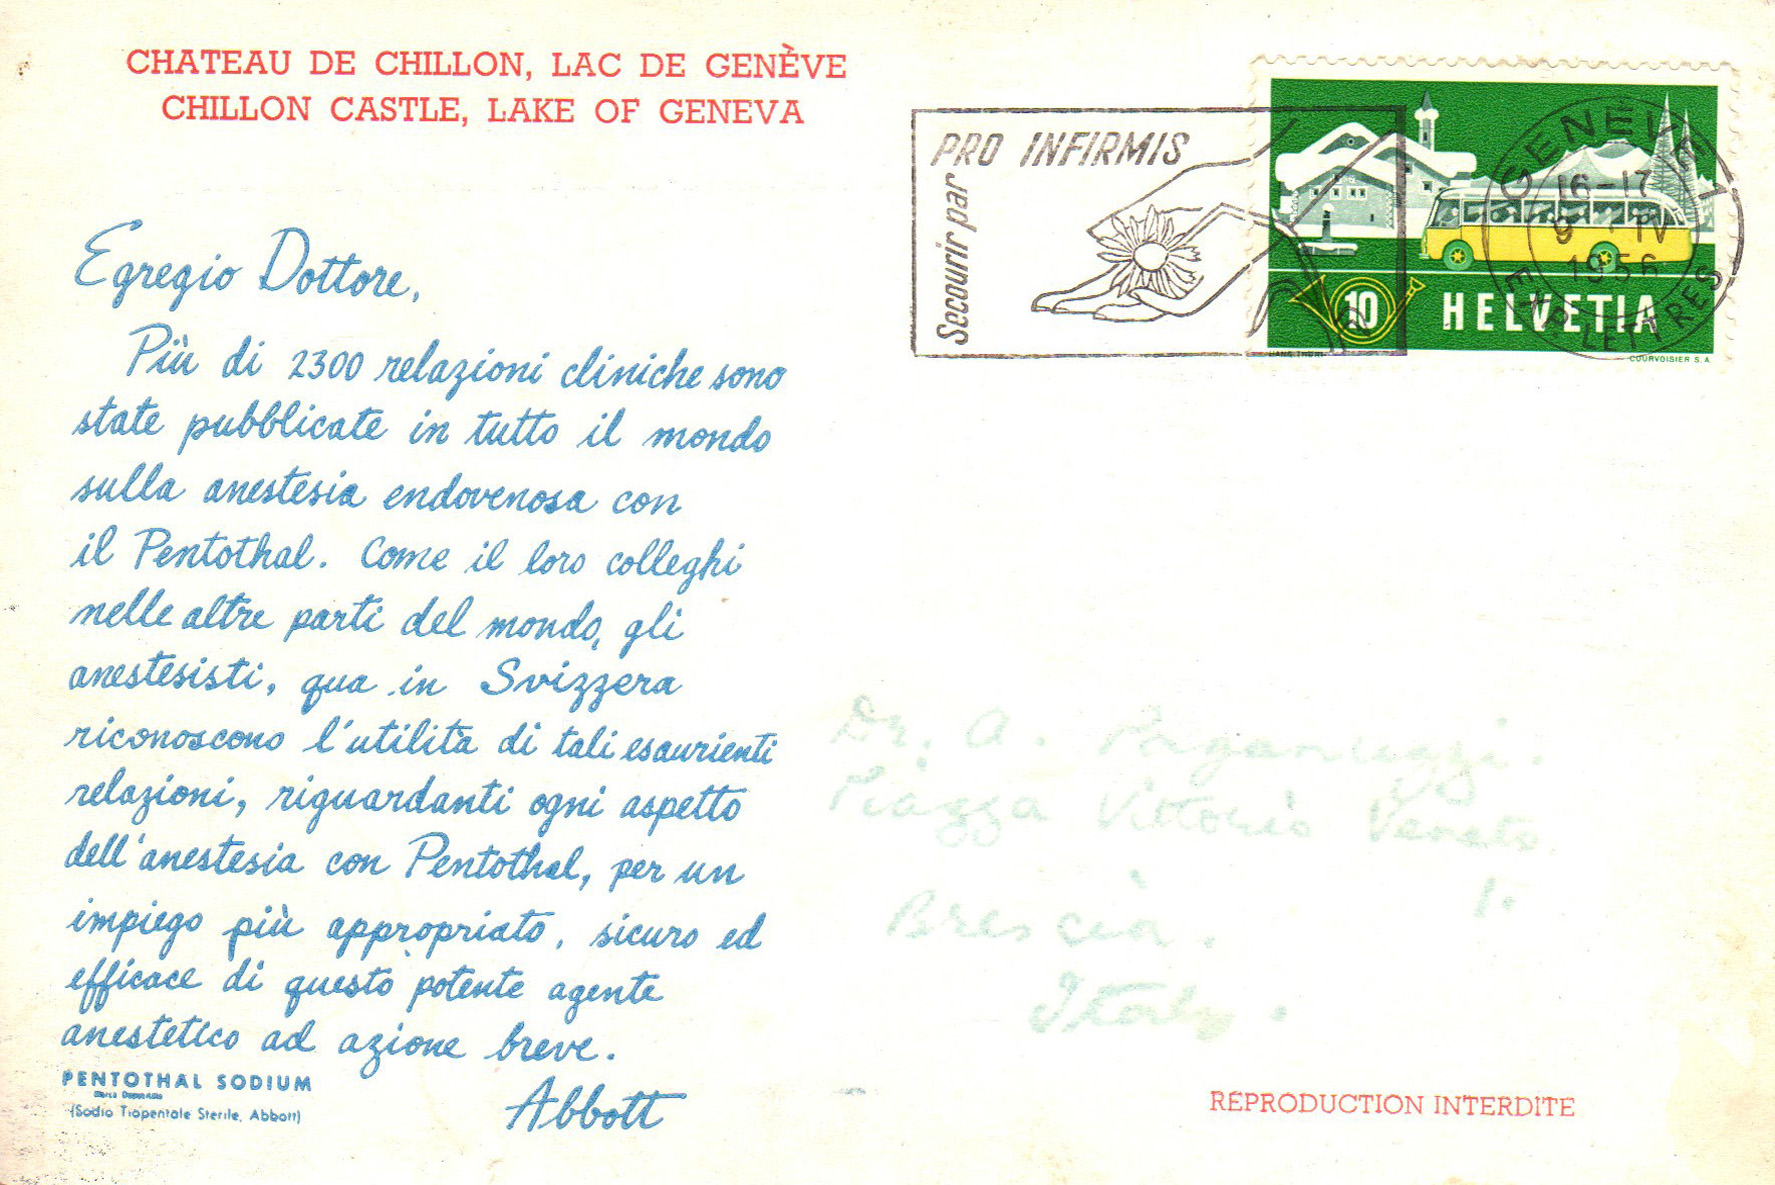 CHATEAU DE CHILLON, LAC DE GENÈVE
CHILLON CASTLE, LAKE OF GENEVA
Egregio Dottore,
Più di 2300 relazioni cliniche sono
state pubblicate in tutto il mondo
sulla anestesia endovenosa con
il Pentothal. Come il loro colleghi
nelle altre parti del mondo, gli
anestesisti, qua in Svizzera
riconoscono l'utilità di tali esaurienti
relazioni, riguardanti ogni aspetto
dell'anestesia con Pentothal, per un
impiego più appropriato, sicuro ed
efficace di questo potente agente
anestetico ad azione breve.
Abbott
PENTOTHAL SODIUM
Marca Depositata
(Sodio Tiopentale Sterile, Abbott)
PRO INFIRMIS
Secourir par
GENÈVE 1
16-17
9 IV
1956
EXP. LETTRES
10 HELVETIA
COURVOISIER S.A.
Dr. A.
Piazza Vittorio Veneto
1.
Brescia.
Italy.
REPRODUCTION INTERDITE